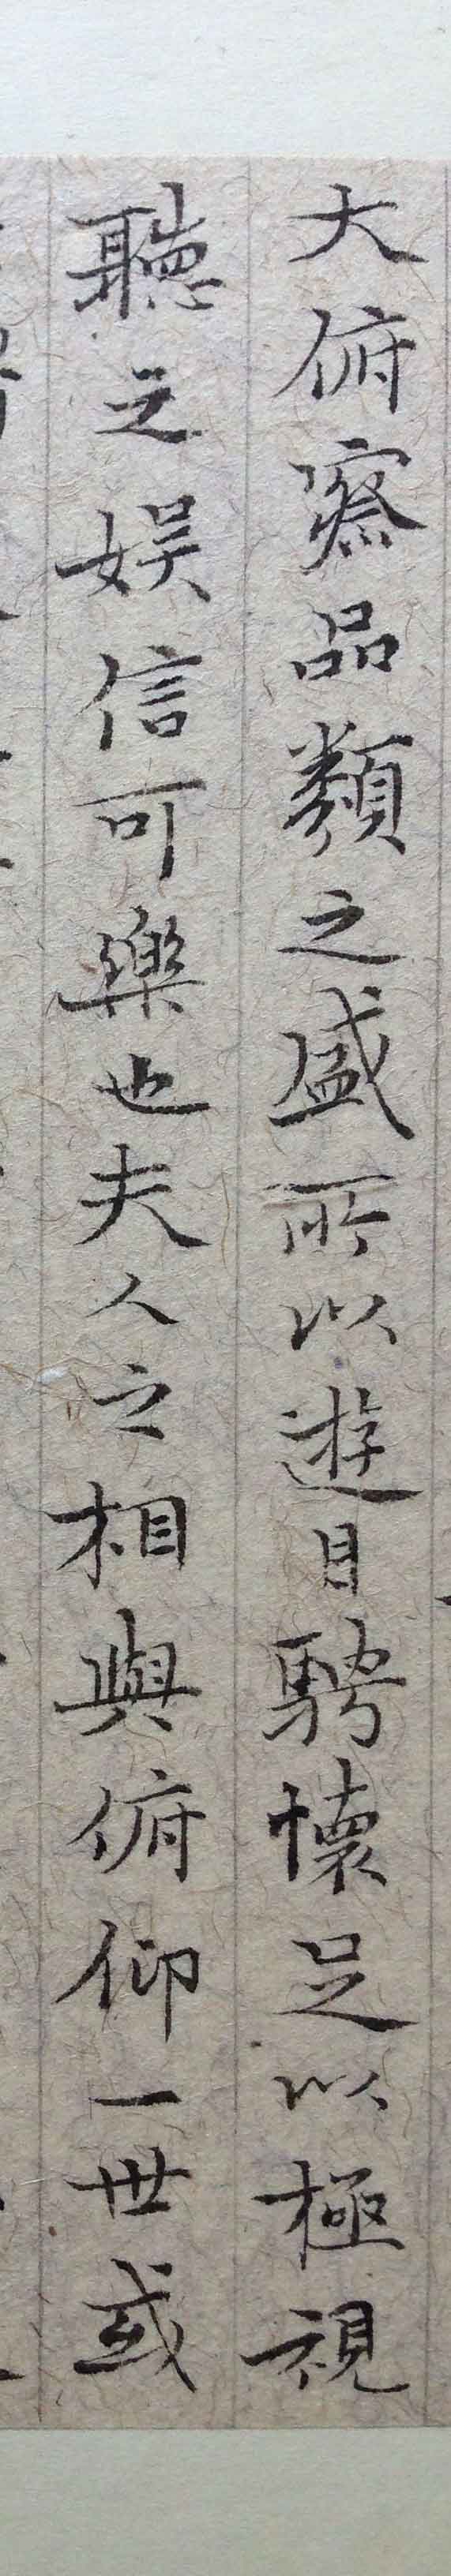 大俯察品類之盛所以遊目騁懷足以極視
聽之娛信可樂也夫人之相與俯仰一世或